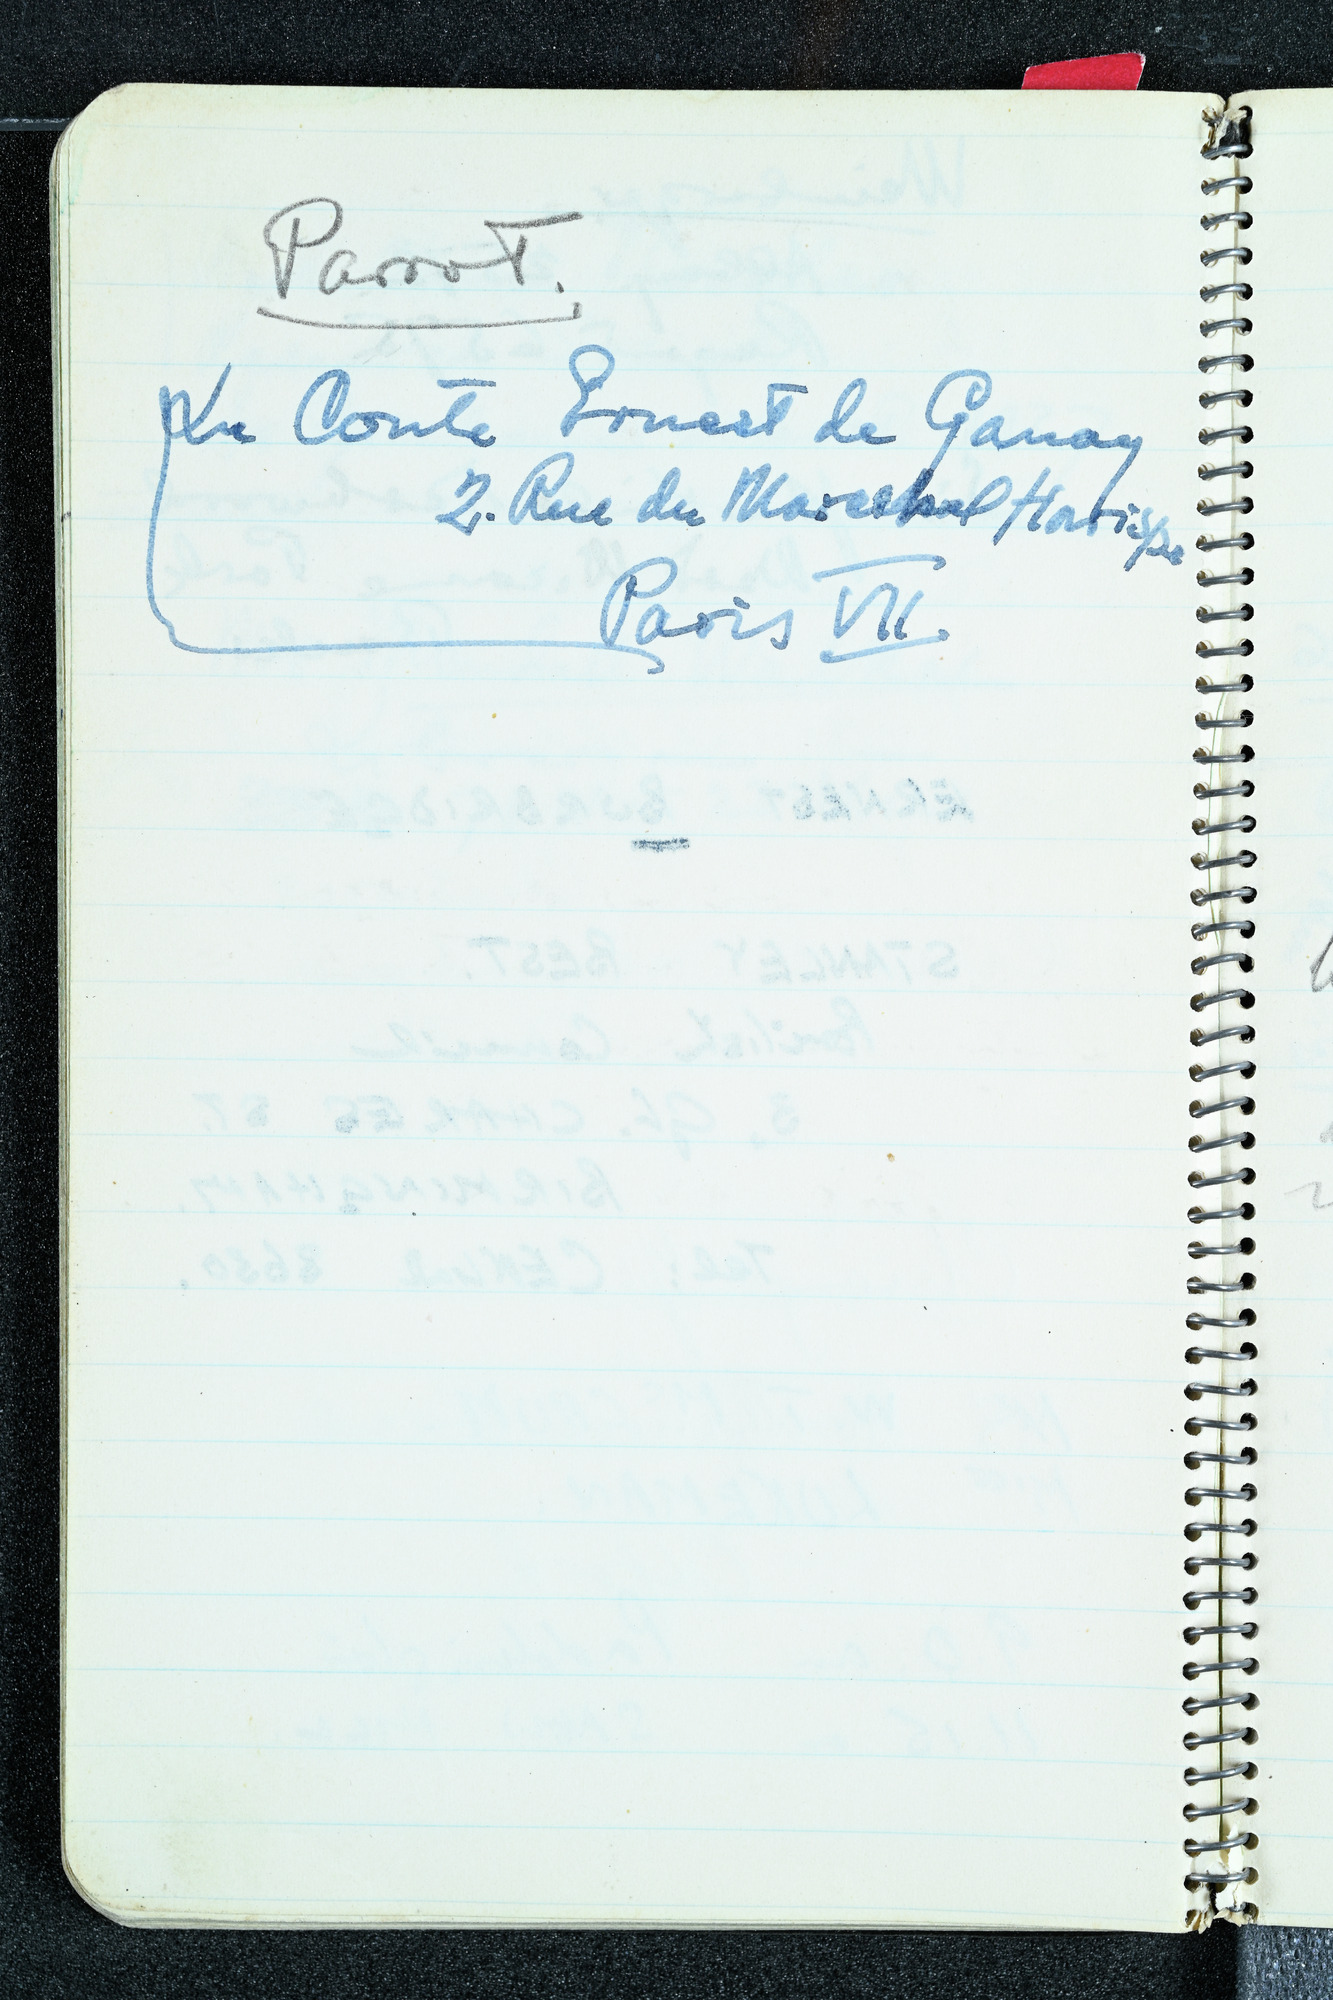 Parrot.
Le Conte Ernest de Ganay
2. Rue du Marechal Harispe
Paris VII.